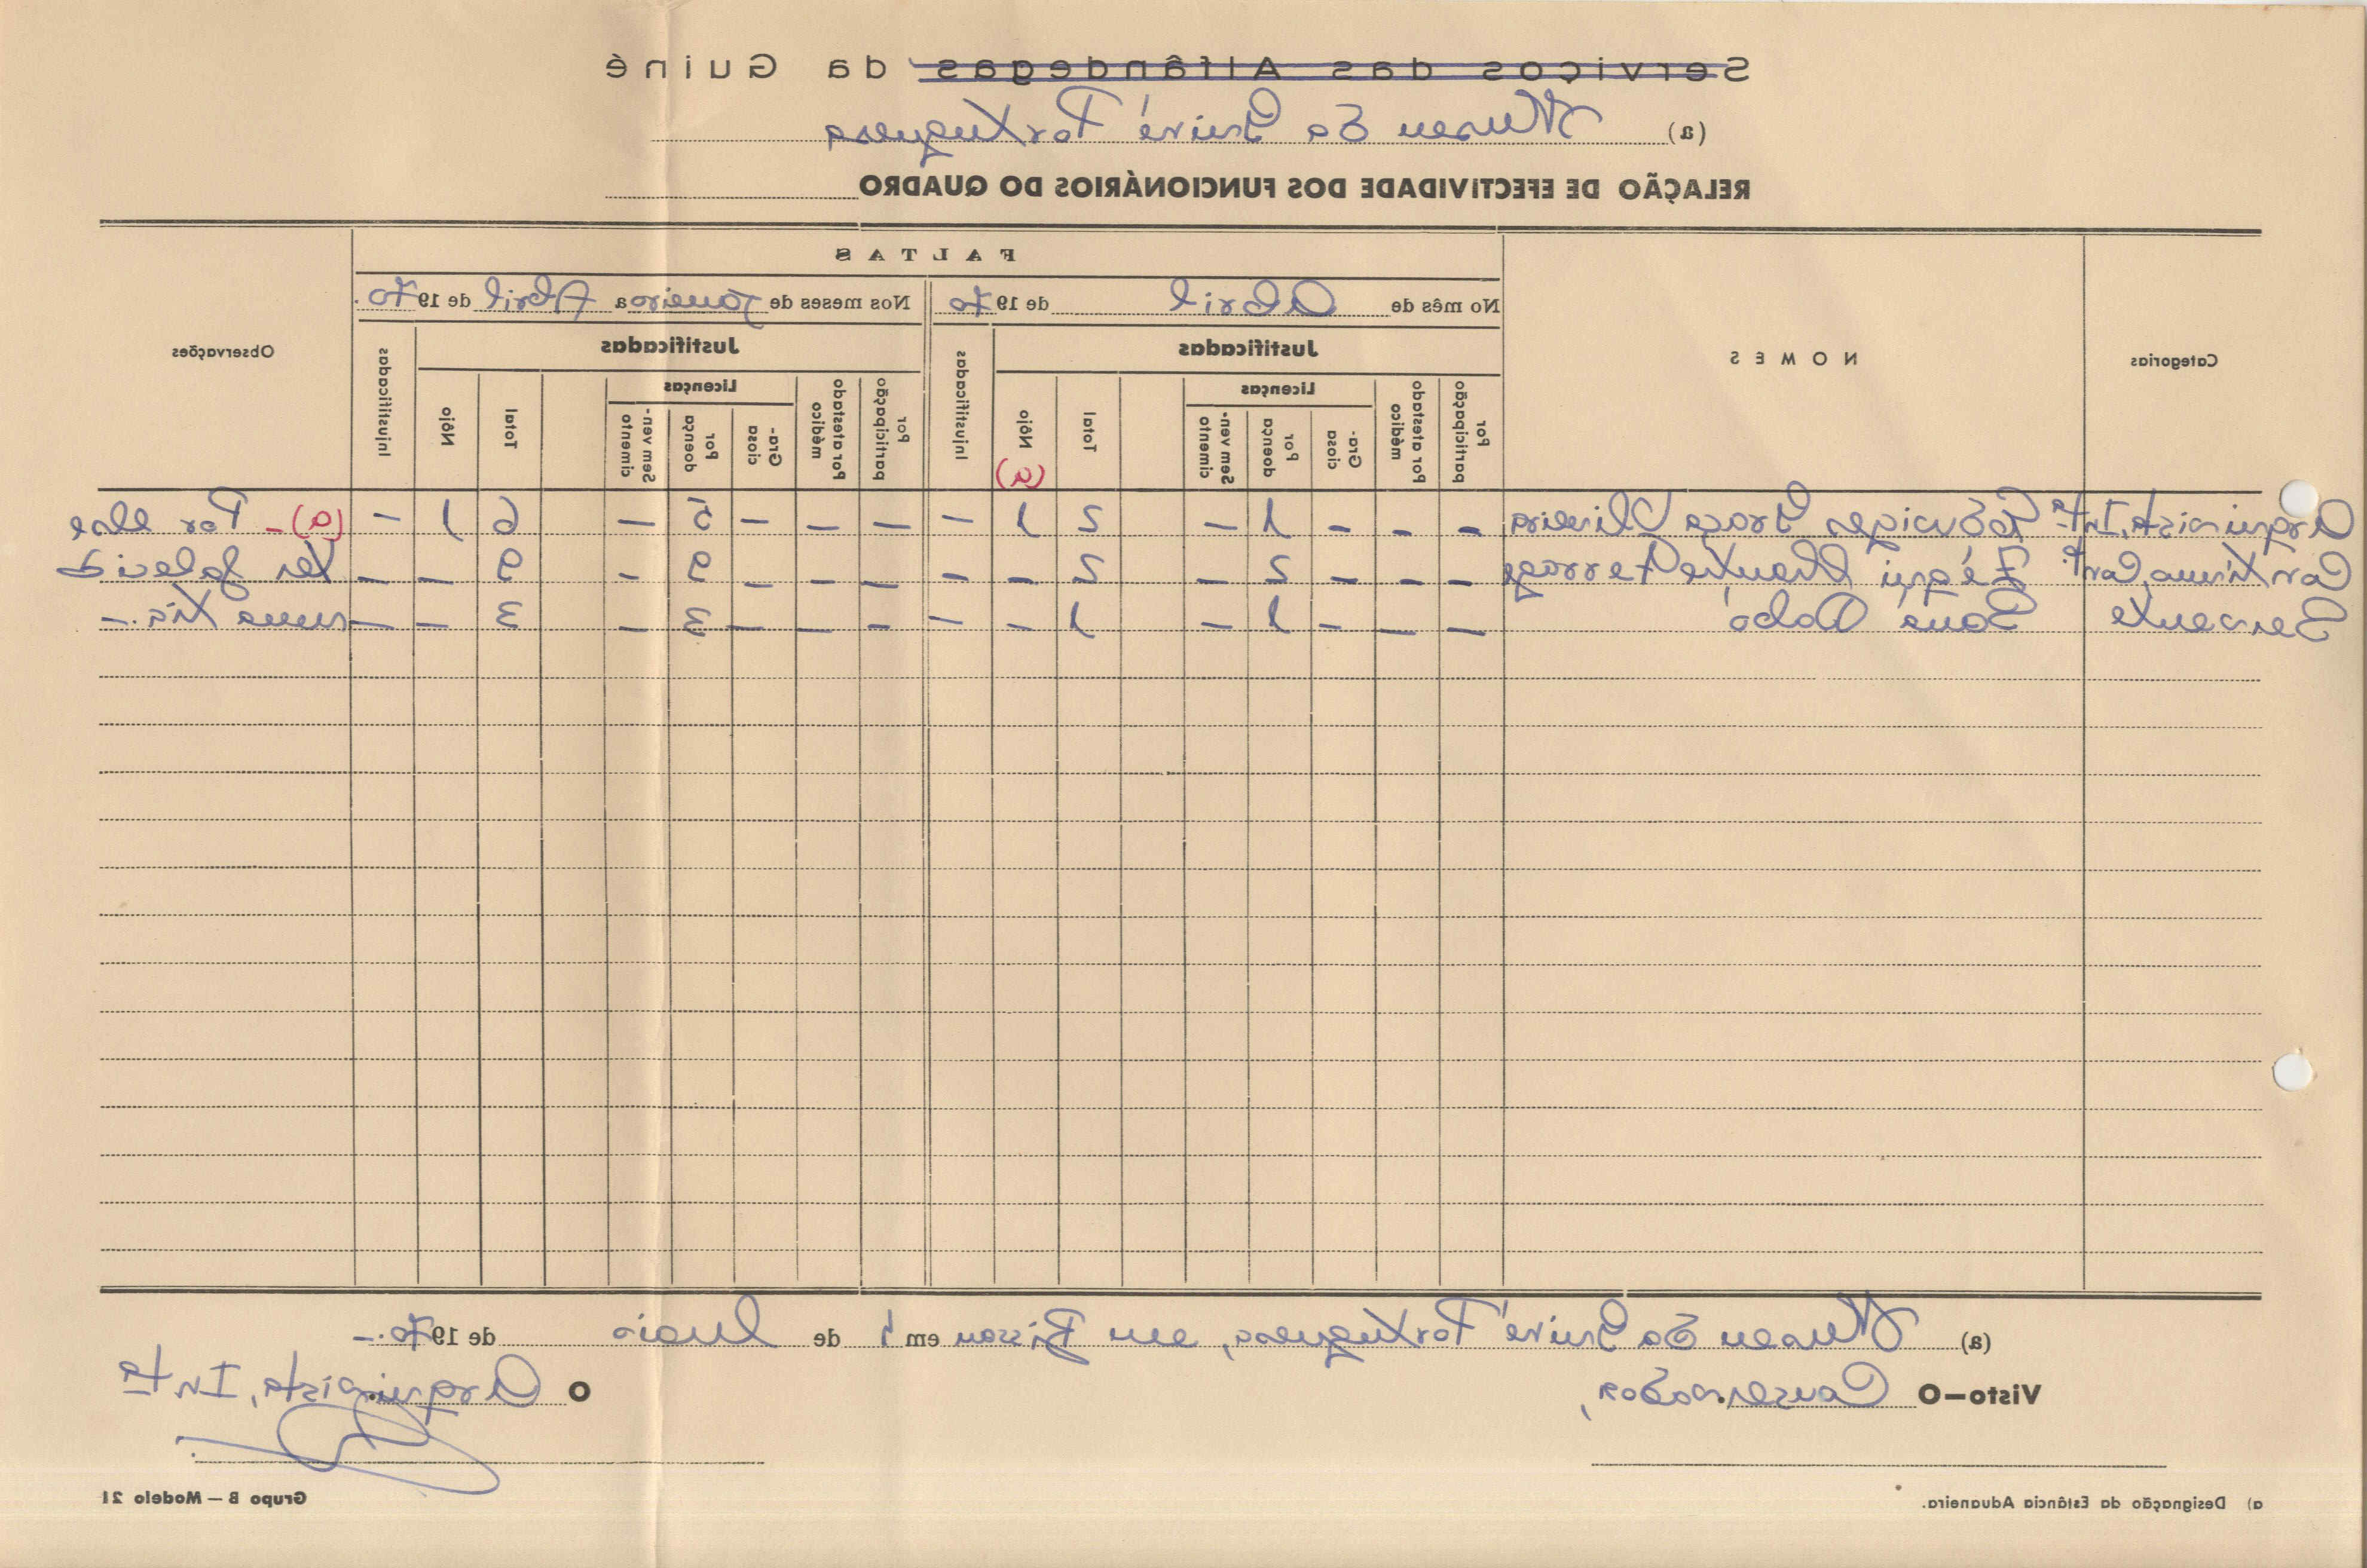 Serviços das Alfândegas da Guiné
(a) Museu da Guiné Portuguesa
RELAÇÃO DE EFECTIVIDADE DOS FUNCIONÁRIOS DO QUADRO
Categorias
NOMES
FALTAS
Observações
No mês de Abril de 1970
Nos meses de Janeiro a Abril de 1970.
Justificadas
Injustificadas
Justificadas
Injustificadas
Por participação
Por atestado médico
Licenças
Graciosa
Por doença
Sem vencimento
Total
Nôjo
(a)
Por participação
Por atestado médico
Licenças
Graciosa
Por doença
Sem vencimento
Total
Nôjo
Arquivista, Intª Graça Oliveira - - - 1 - 2 1 - - - - 5 - 6 1 - (a) - Por
Duarte - - - 2 - 2 - - - - - 9 - 9 - - ter falecid
Servente - - - 1 - 1 - - - - - 3 - 3 - - uma tia.-
(a) Museu da Guiné Portuguesa, em Bissau em de Maio de 1970.-
Visto—O Conservador,
O Arquivista, Intª
a) Designação da Estância Aduaneira.
Grupo B — Modelo 21